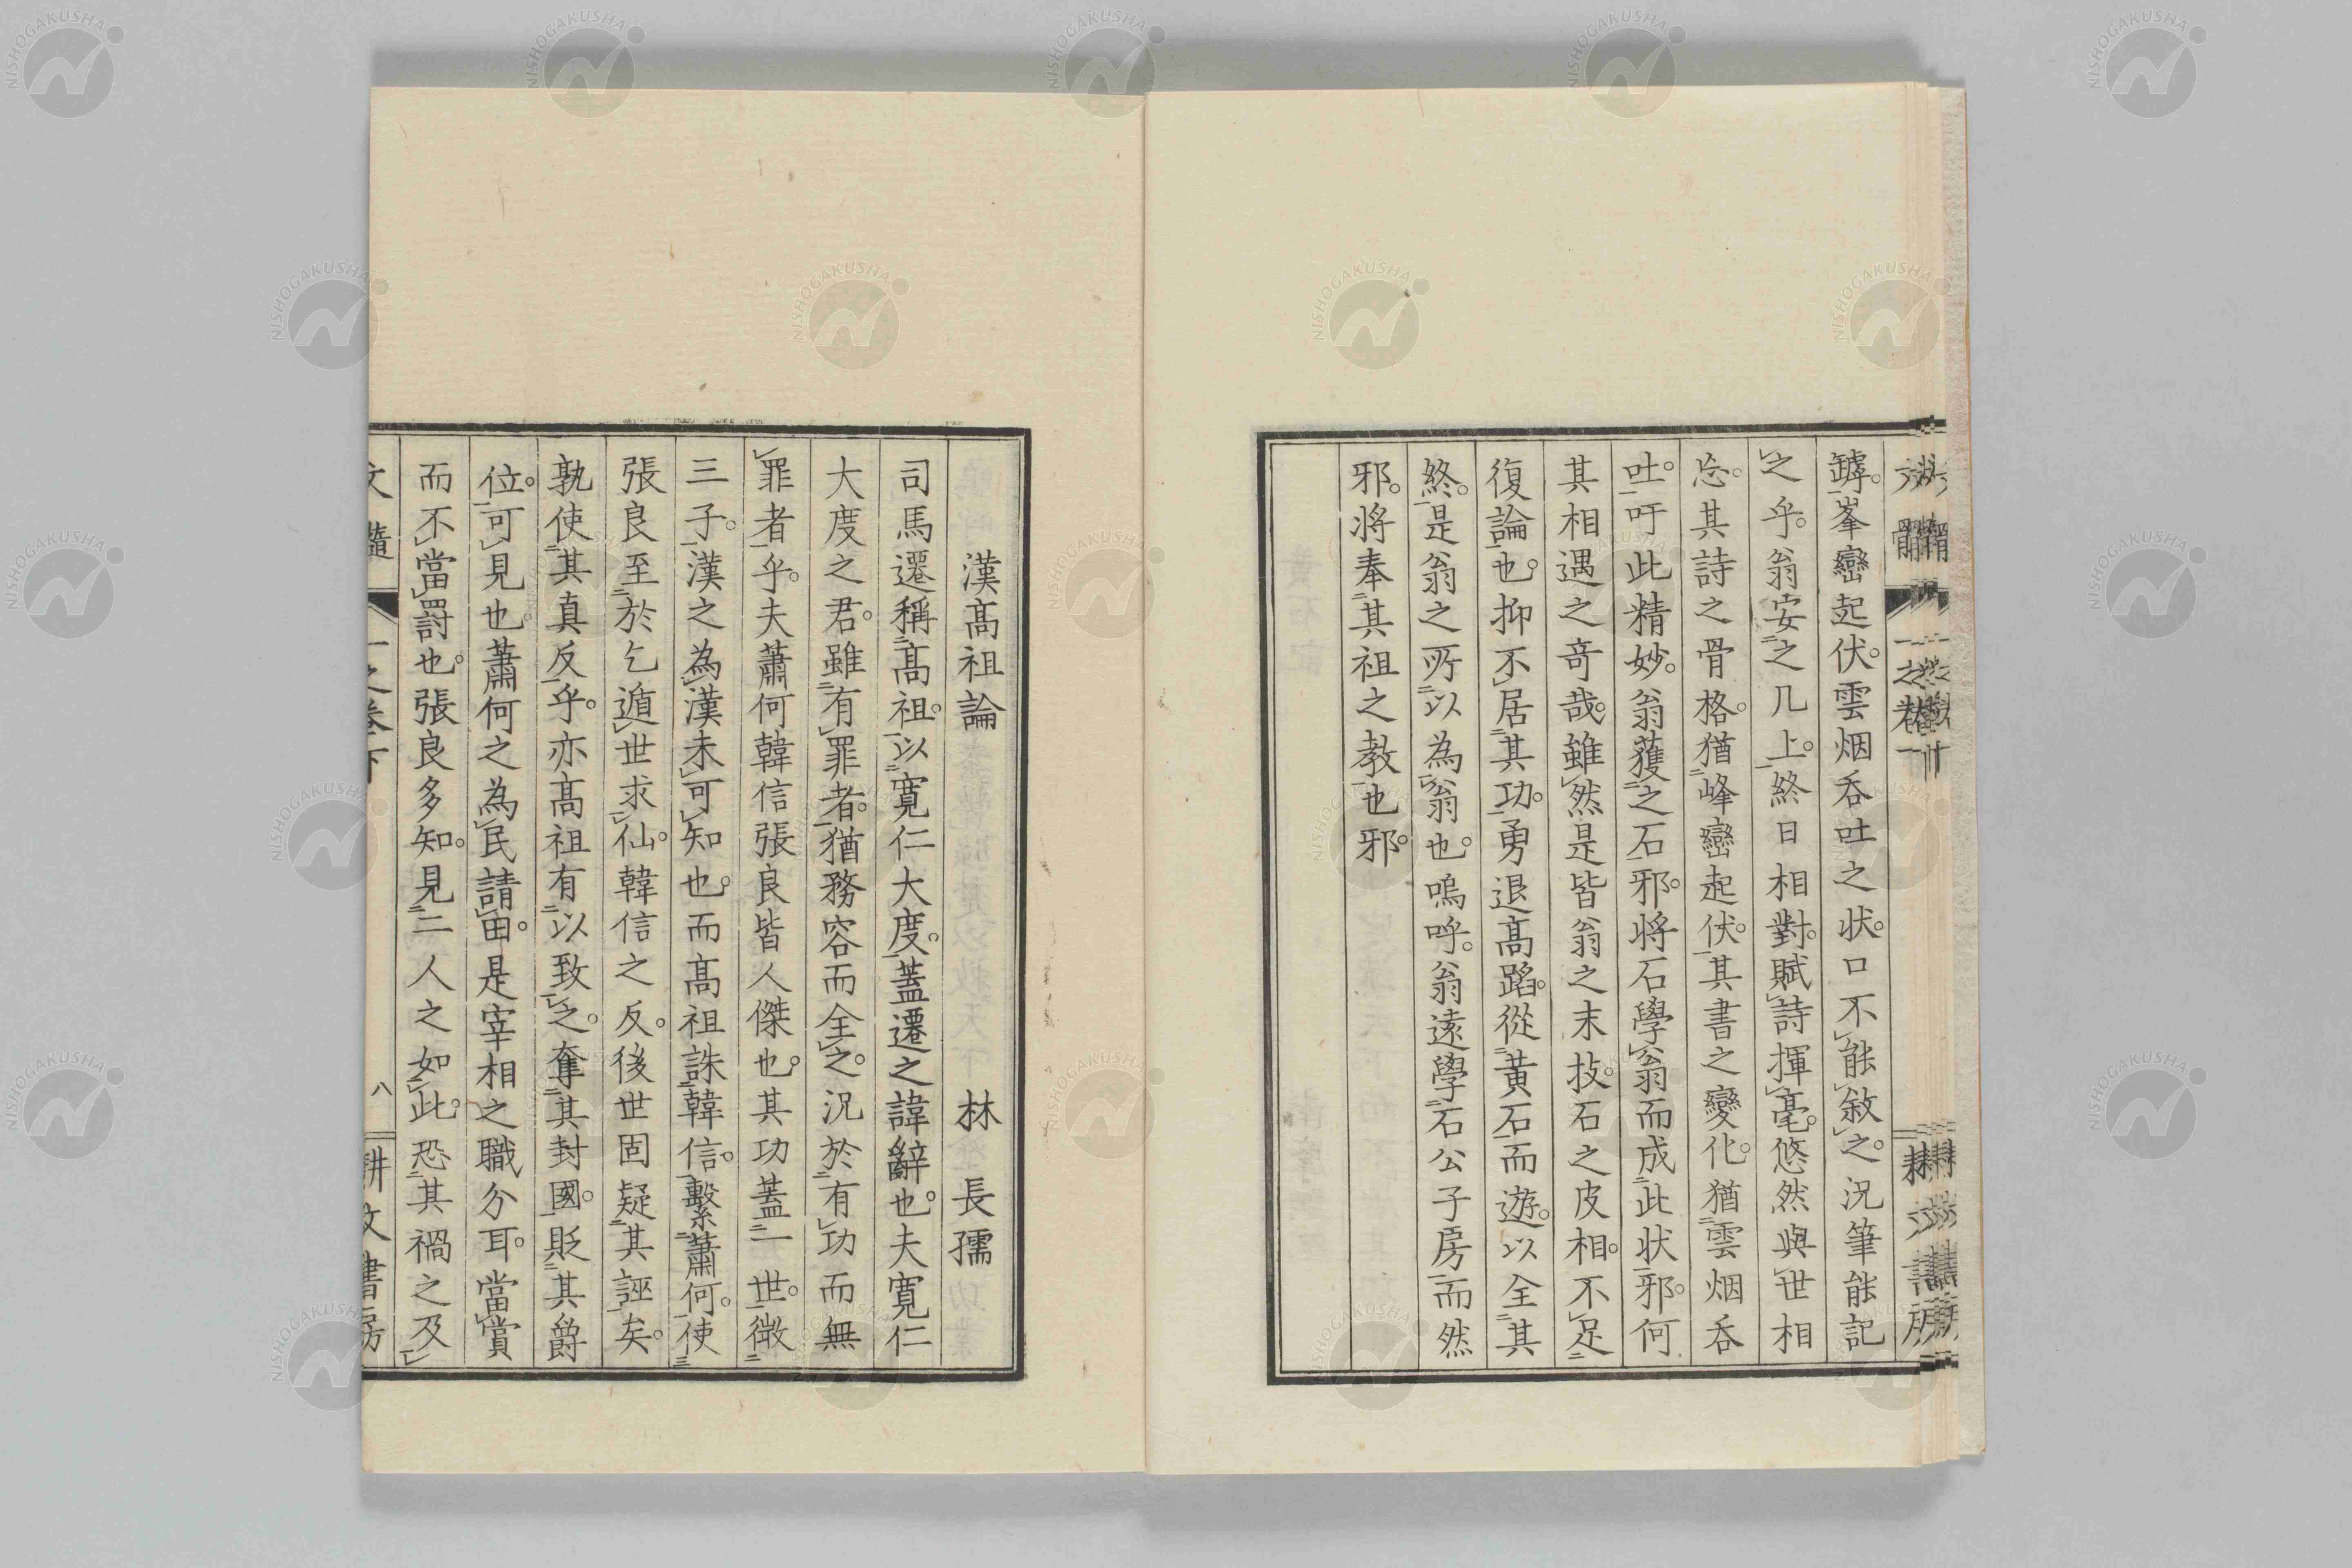 罅。峯巒起伏。雲烟呑吐之狀。口不能敘之。況筆能記
之乎。翁安之几上。終日相對。賦詩揮毫。悠然與世相
忘。其詩之骨格。猶峰巒起伏。其書之變化。猶雲烟呑
吐。吁此精妙。翁獲之石邪。將石學翁而成此狀邪。何
其相遇之奇哉。雖然是皆翁之末技。石之皮相。不足
復論也。抑不居其功。勇退高蹈。從黄石而遊。以全其
終。是翁之所以為翁也。嗚呼。翁遠學石公子房。而然
邪。將奉其祖之教也邪。
漢高祖論 林長孺
司馬遷稱高祖。以寛仁大度。蓋遷之諱辭也。夫寛仁
大度之君。雖有罪者。猶務容而全之。況於有功而無
罪者乎。夫蕭何韓信張良皆人傑也。其功蓋一世。微
三子。漢之為漢未可知也。而高祖誅韓信。繫蕭何。使
張良至於乞遁世求仙。韓信之反。後世固疑其誣矣。
孰使其真反乎。亦高祖有以致之。奪其封國。貶其爵
位。可見也。蕭何之為民請田。是宰相之職分耳。當賞
而不當罰也。張良多知。見二人之如此。恐其禍之及
文髓 一之卷下 八 耕文書房